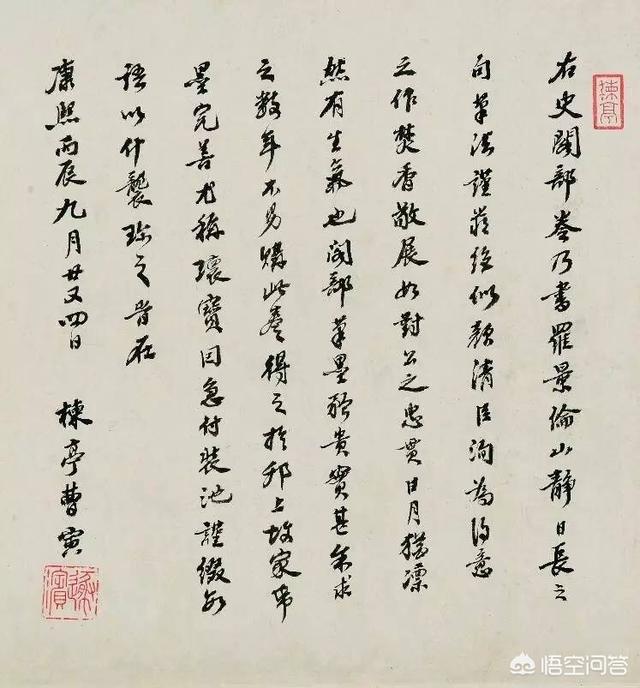 楝亭
右史閣部卷乃書羅景倫山靜日長之
句筆法謹嚴絕似顏清臣洵為得意
之作焚香敬展如對公之忠貫日月猶凛
然有生氣也閣部筆墨珍貴實甚余求
之數年不易購此卷得之於邗上故家帋
墨完善尤稱瓌寶因急付裝池謹綴數
語以什襲珍之旹在
康熙丙辰九月廿又四日 楝亭曹寅
悟空问答